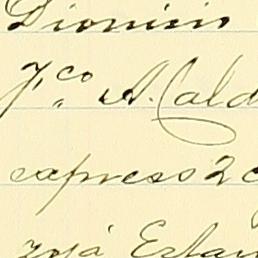 Dionisio
Fco A. Cald
espreso 2 c
zojá Estan